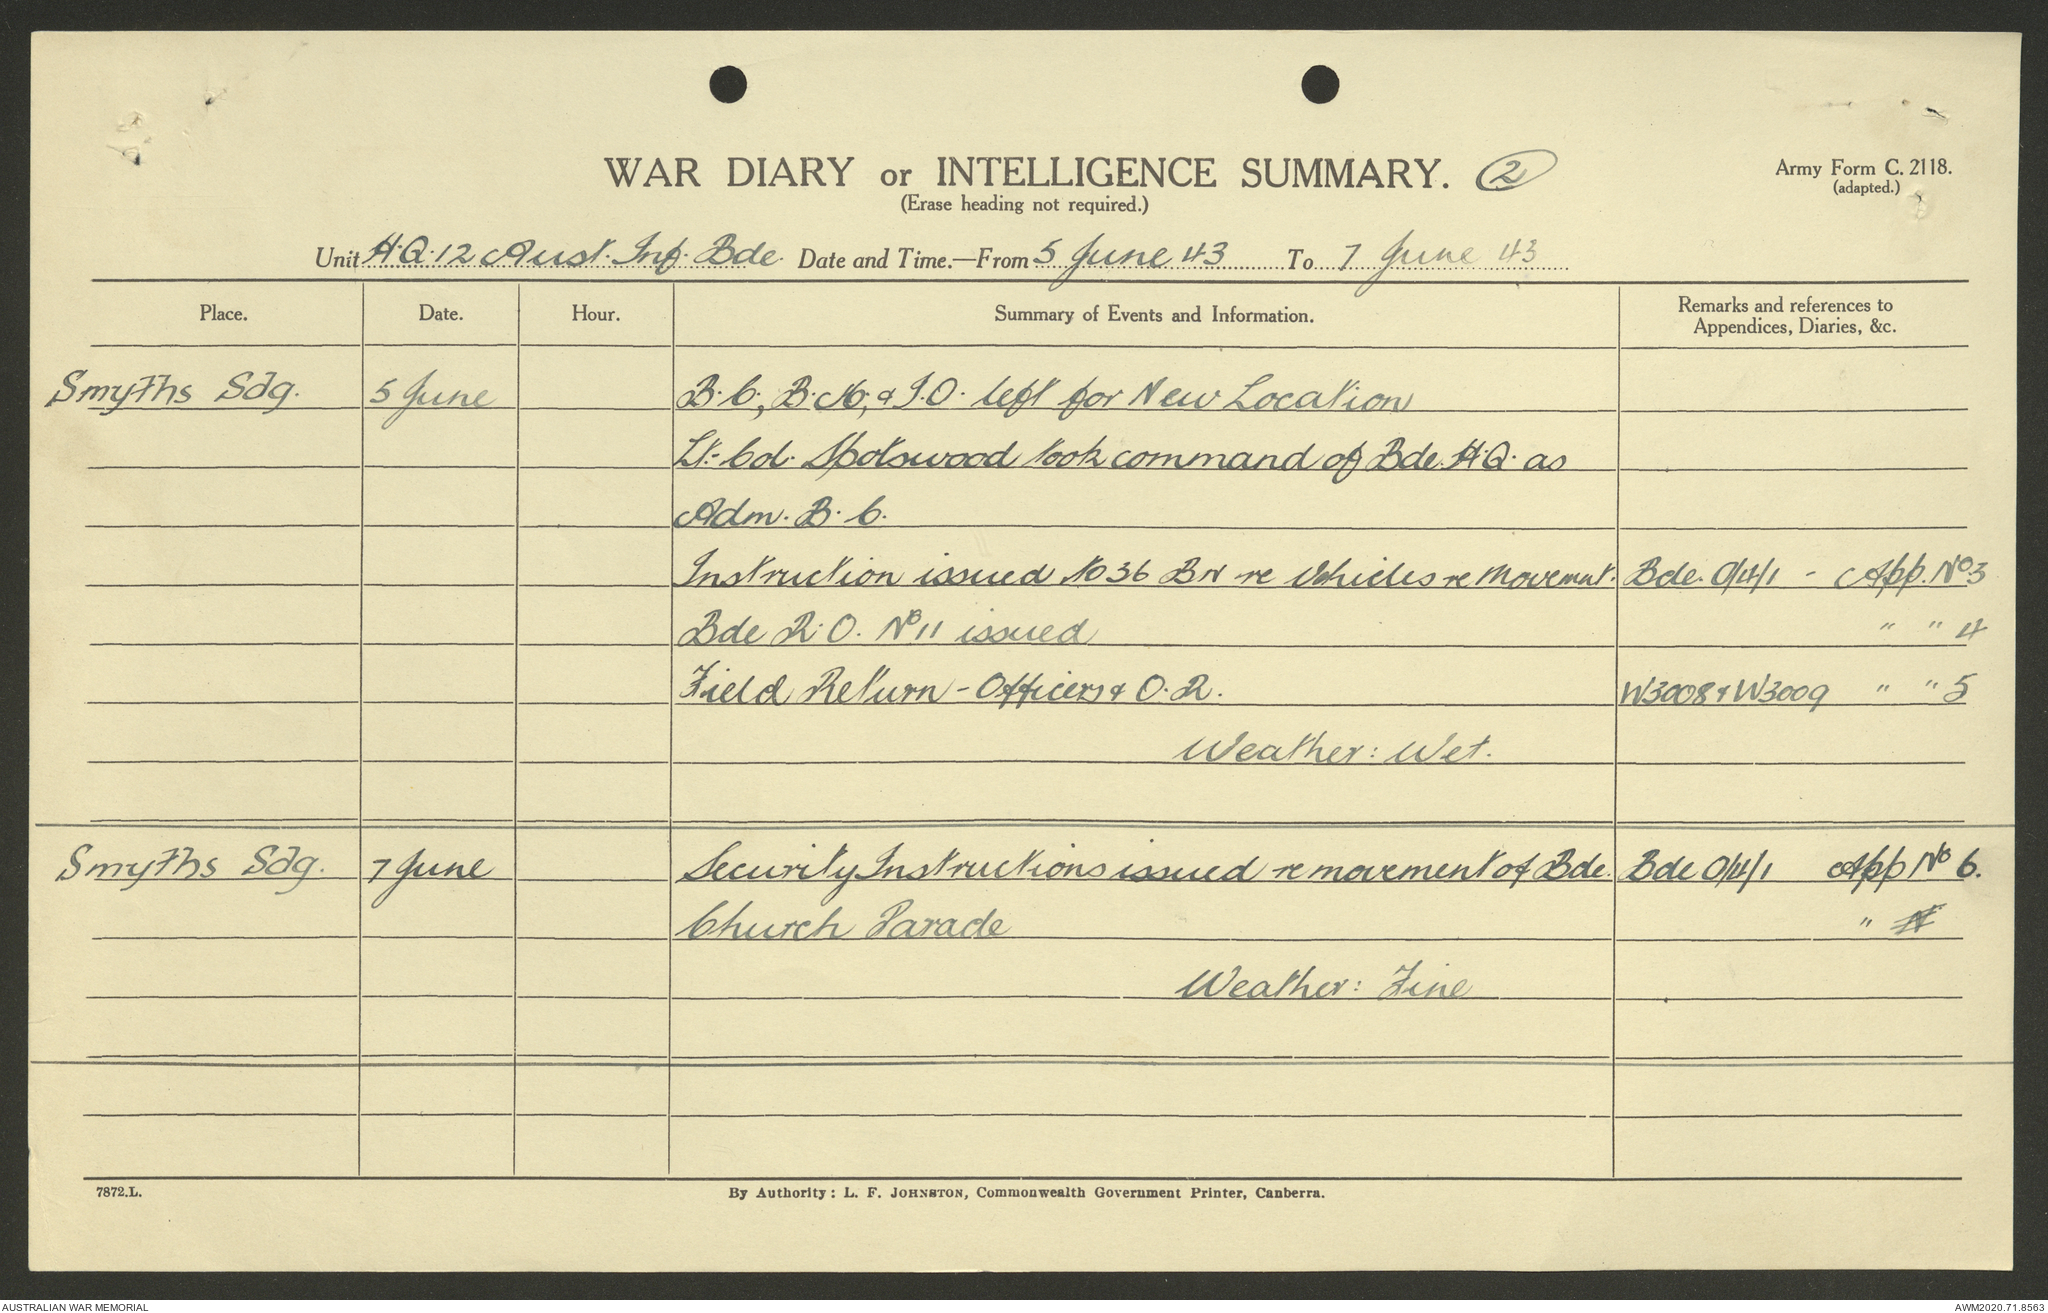 WAR DIARY or INTELLIGENCE SUMMARY. 2
Army Form C. 2118.
(adapted.)
(Erase heading not required.)
Unit H.Q. 12 Aust. Inf. Bde. Date and Time.—From 5 June 43 To 7 June 43
Place. Date. Hour. Summary of Events and Information. Remarks and references to Appendices, Diaries, &c.
Smyths Sdg. 5 June B.C., B.M., & I.O. left for New Location
Lt.-Col. Spotswood took command of Bde. H.Q. as
Adm. B.C.
Instruction issued to 36 BN re Vehicles re Movement. Bde. O/4/1 - App. No 3
Bde R.O. No 11 issued " " 4
Field Return - Officers & O.R. W3008 & W3009 " " 5
Weather: Wet.
Smyths Sdg. 7 June Security Instructions issued re movement of Bde. Bde O/4/1 App No 6.
Church Parade "
Weather: Fine
7872.L.
By Authority: L. F. JOHNSTON, Commonwealth Government Printer, Canberra.
AUSTRALIAN WAR MEMORIAL AWM2020.71.8563